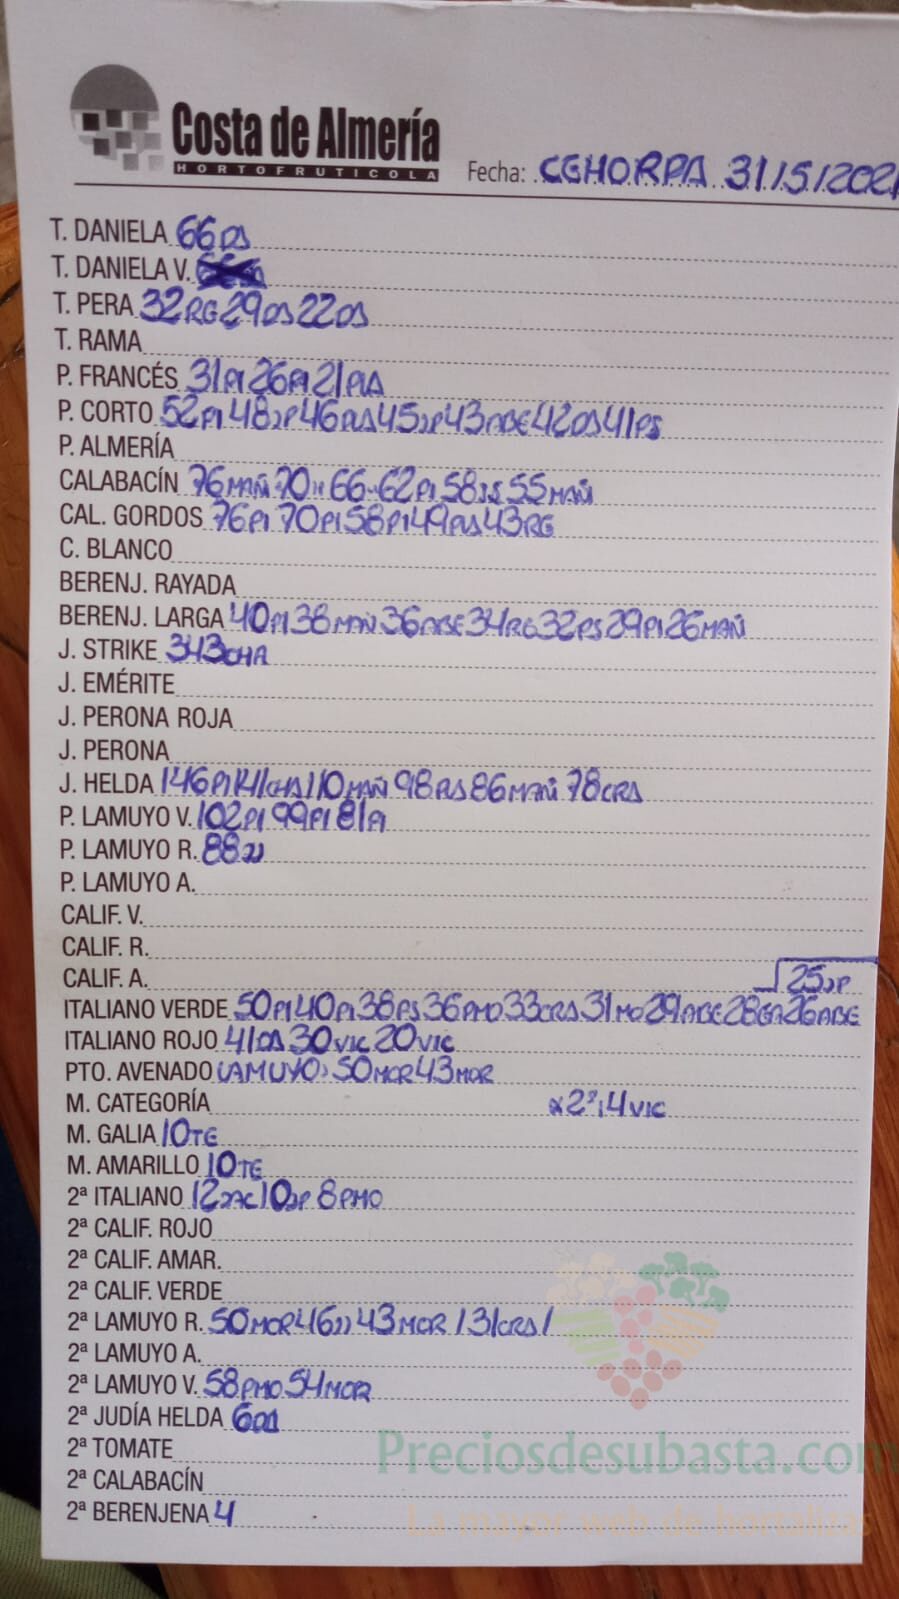 Costa de Almería
HORTOFRUTICOLA
Fecha: CEHORPA 31/5/202
T. DANIELA 66DS
T. DANIELA V.
T. PERA 32RG 29DS 22DS
T. RAMA
P. FRANCÉS 31PI 26PI 21PIA
P. CORTO 52PI 48JP 46PLS 45JP 43ABE 42DS 41PS
P. ALMERÍA
CALABACÍN 76MAÑ 70" 66-62PI 58JS 55MAÑ
CAL. GORDOS 76PI 70PI 58PI 49PLS 43RG
C. BLANCO
BERENJ. RAYADA
BERENJ. LARGA 40PI 38MAÑ 36ABE 34RG 32PS 29PI 26MAÑ
J. STRIKE 343CHA
J. EMÉRITE
J. PERONA ROJA
J. PERONA
J. HELDA 146PI 141CHA 110MAÑ 98PLS 86MAÑ 78CRS
P. LAMUYO V. 102PI 99PI 81PI
P. LAMUYO R. 88JJ
P. LAMUYO A.
CALIF. V.
CALIF. R.
CALIF. A. 25JP
ITALIANO VERDE 50PI 40PI 38PS 36PMO 33CRS 31MO 29ABE 28GA 26ABE
ITALIANO ROJO 41DS 30VIC 20VIC
PTO. AVENADO LAMUYO> 50MOR 43MOR
M. CATEGORÍA x2ª,4VIC
M. GALIA 10TE
M. AMARILLO 10TE
2ª ITALIANO 12 10JP 8PMO
2ª CALIF. ROJO
2ª CALIF. AMAR.
2ª CALIF. VERDE
2ª LAMUYO R. 50MOR 46JJ 43MOR /31CRS/
2ª LAMUYO A.
2ª LAMUYO V. 58PMO 54MOR
2ª JUDÍA HELDA
2ª TOMATE
Preciosdesubasta.com
2ª CALABACÍN
2ª BERENJENA 4
La mayor web de hortalizas